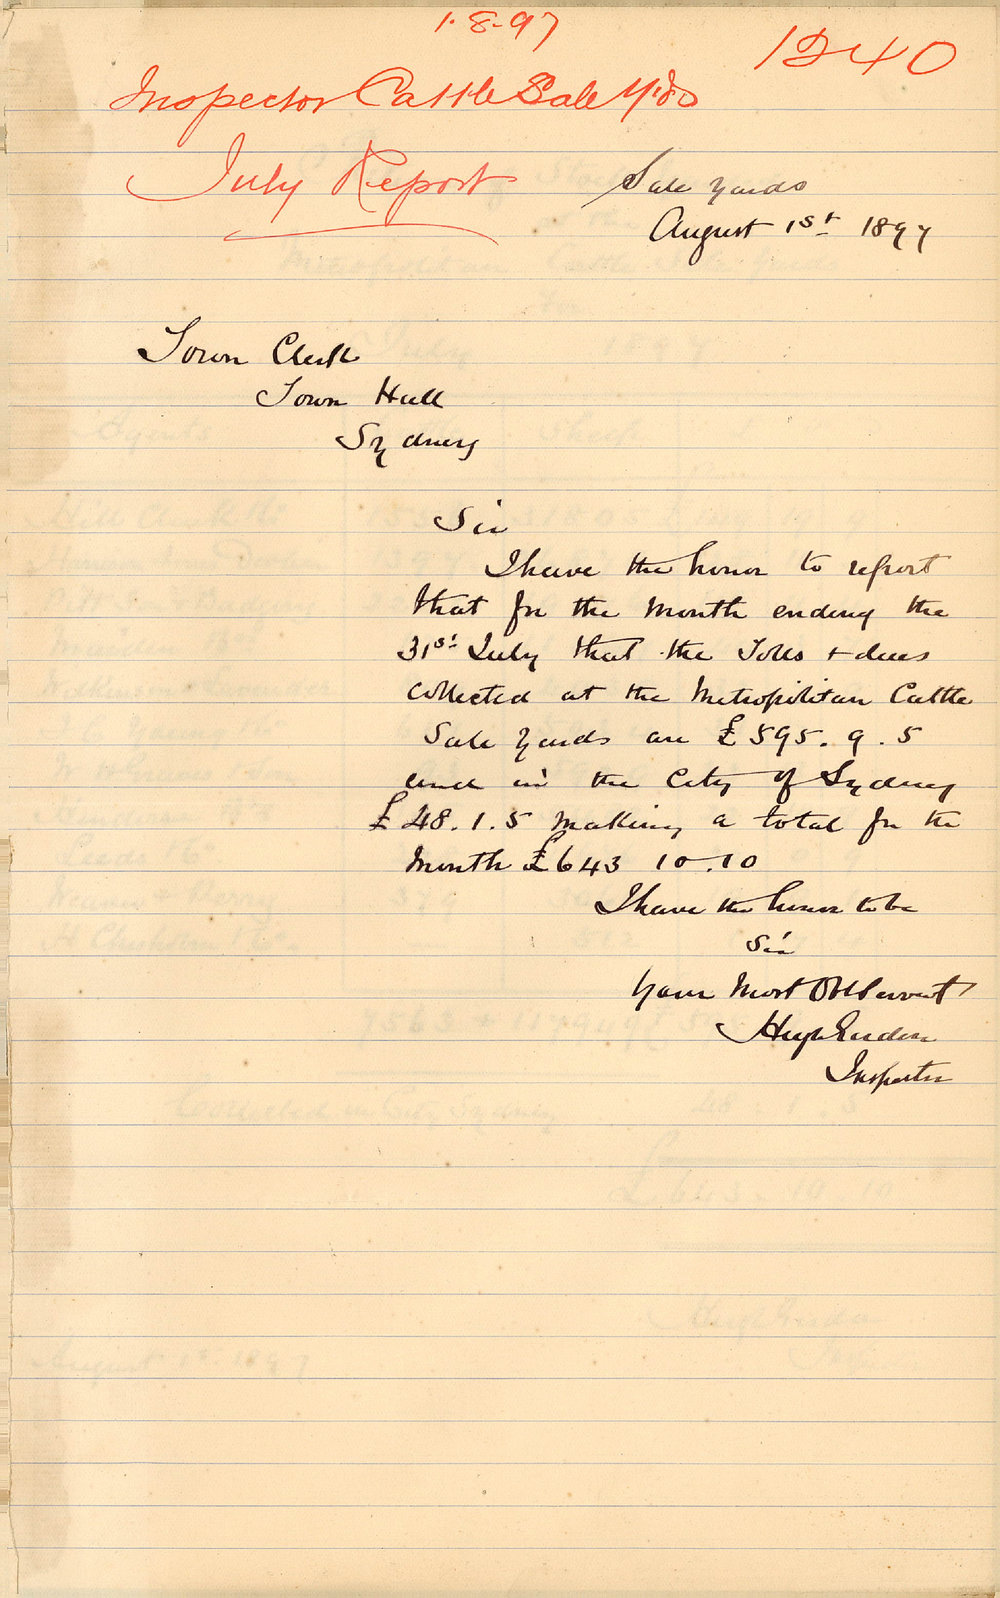 1.8.97
1240
Inspector Cattle Sale Y'ds
July Report
Sale Yards
August 1st 1897
Town Clerk
Town Hall
Sydney
Sir
I have the honor to report
that for the Month ending the
31st July that the Tolls + dues
collected at the Metropolitan Cattle
Sale Yards are £595.9.5
and in the City of Sydney
£48.1.5 making a total for the
Month £643 10.10
I have the honor to be
Sir
Your Most Obt Servant
Hugh
Inspector